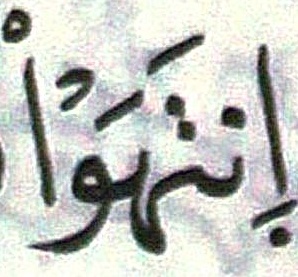 اِنتَهَوْاْ